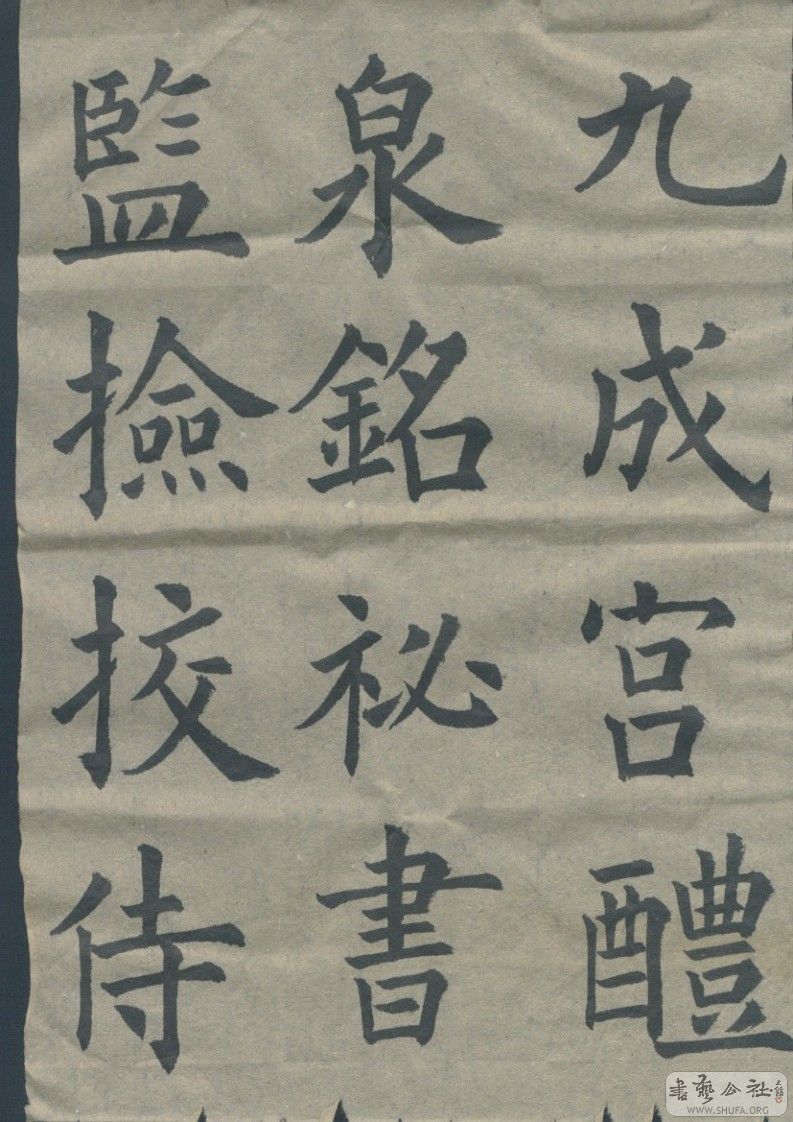 九成宮醴
泉銘祕書
監撿挍侍
書藝公社
WWW.SHUFA.ORG